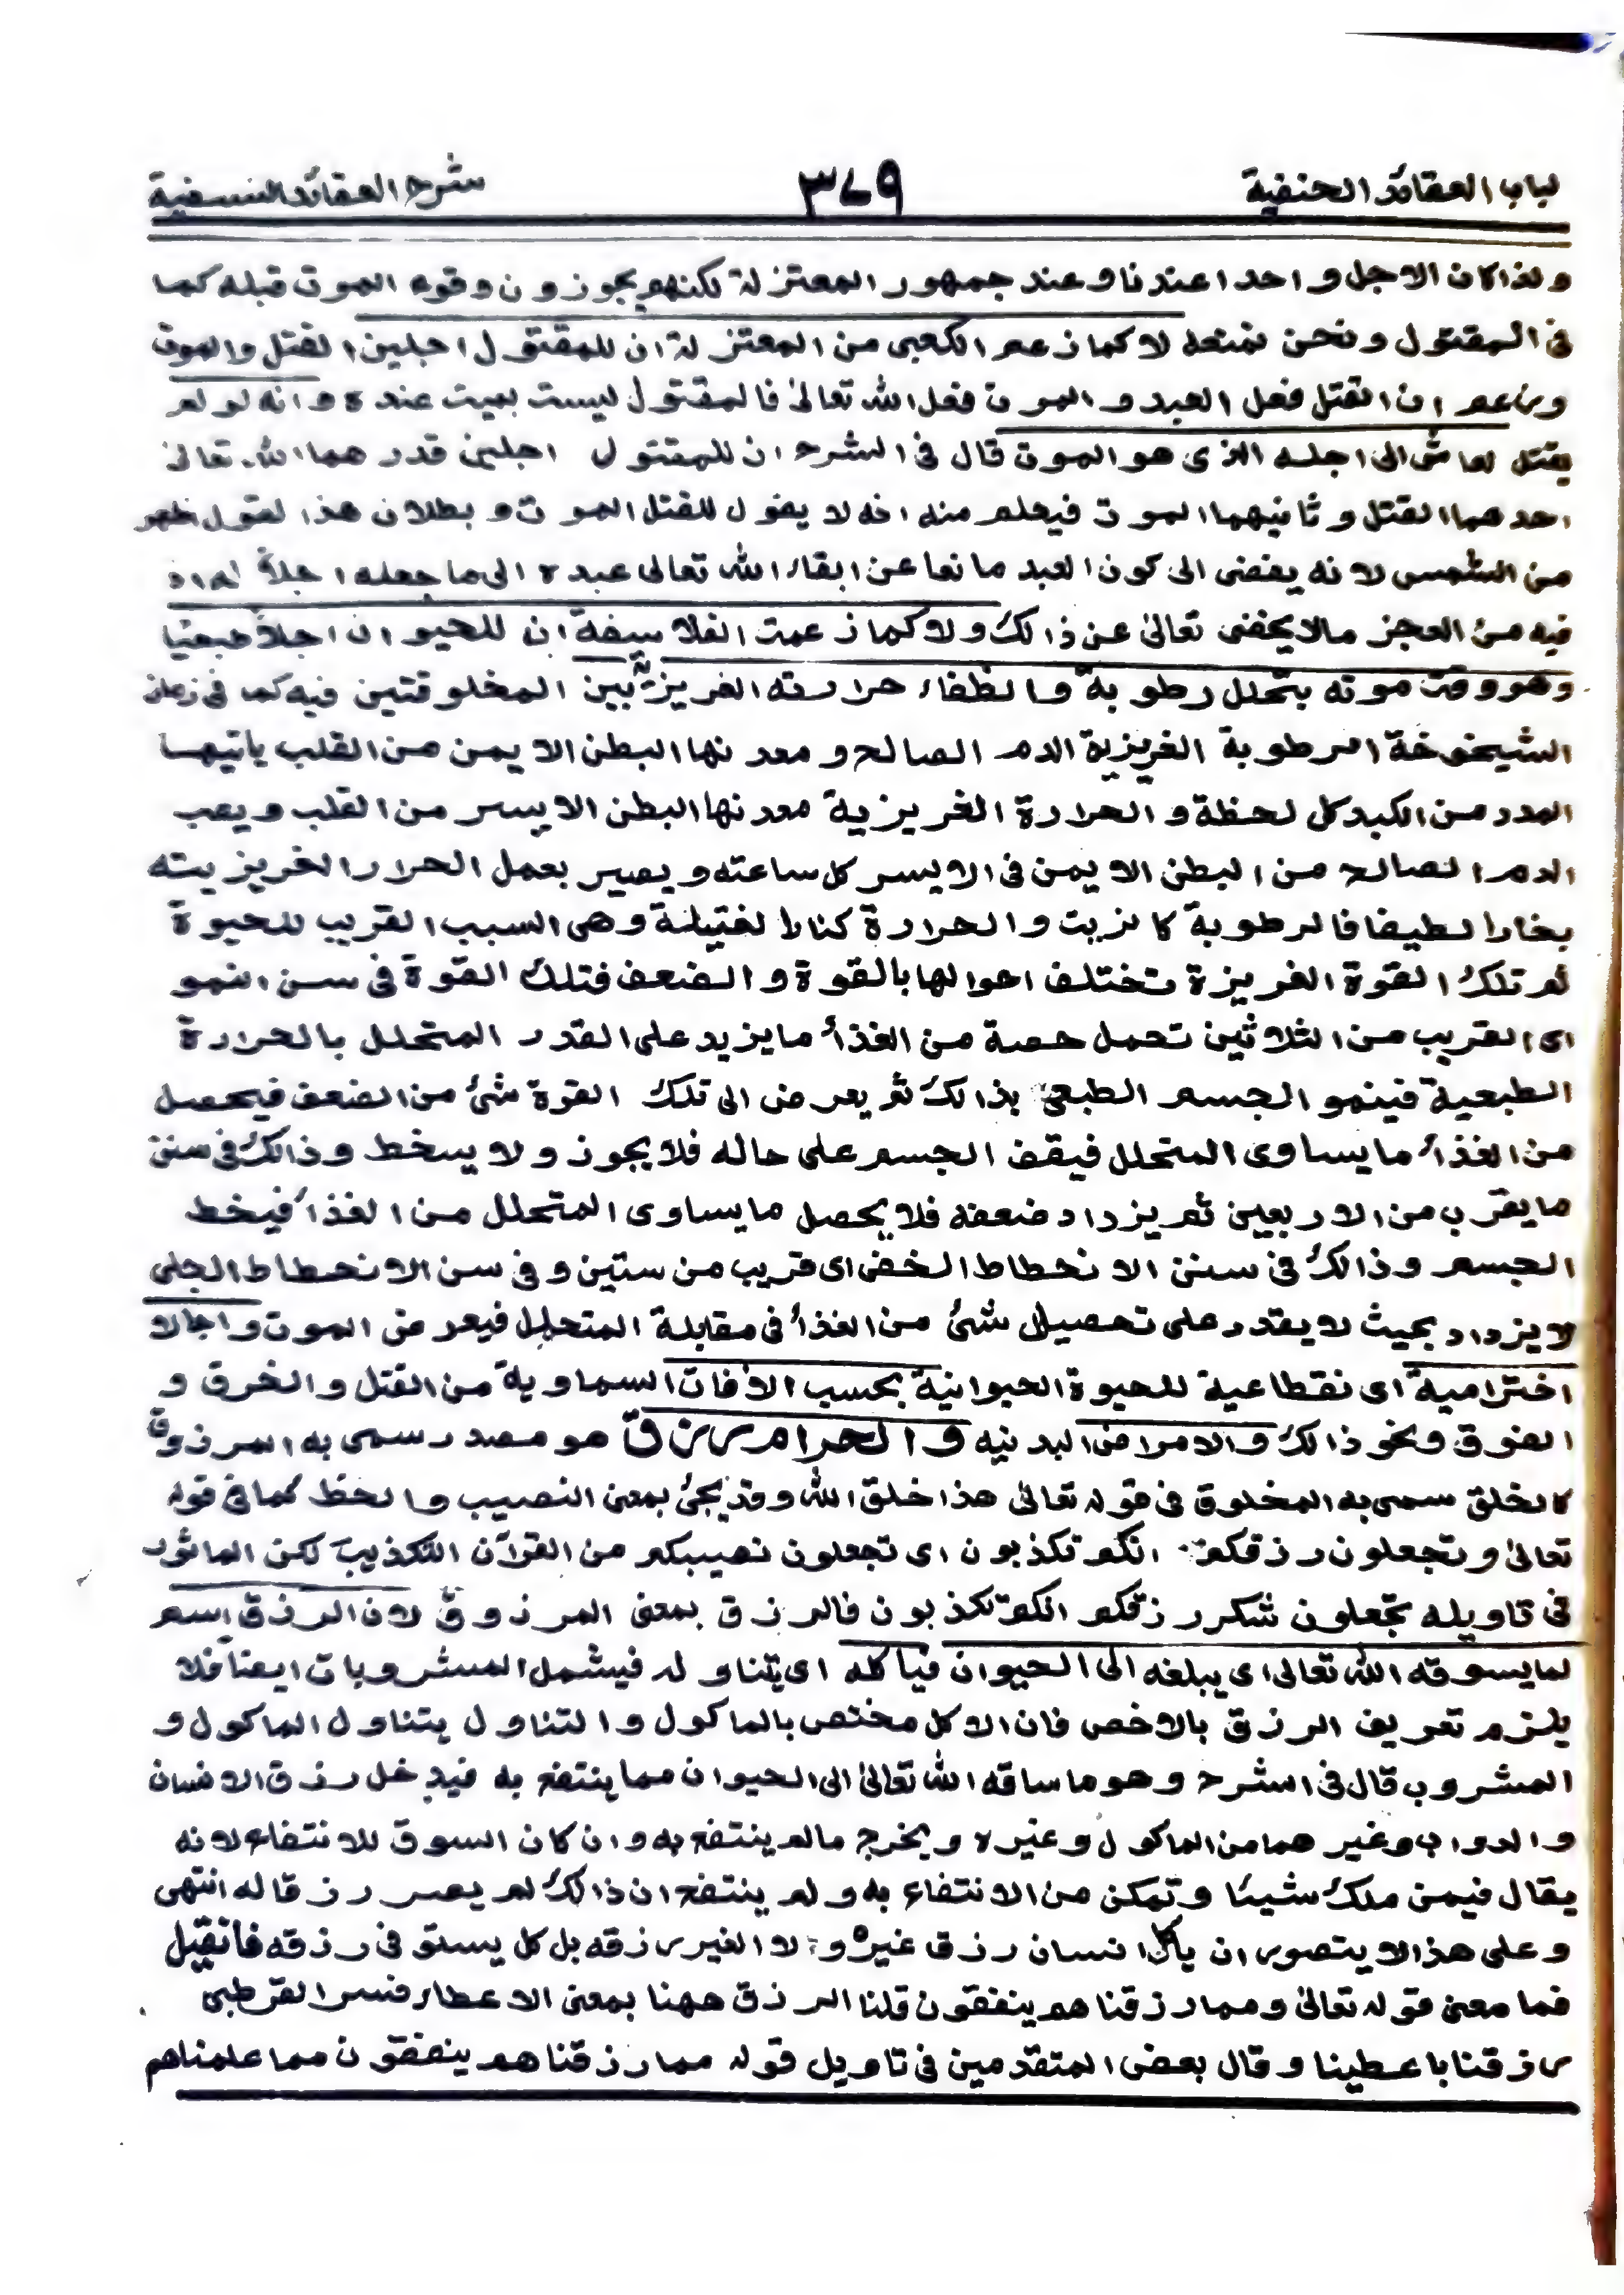 لباب العقائد الحنفية ٣٧٩ شرح العقائد النسفية
ولذا كان الاجل واحدا عندنا وعند جمهور المعتزلة لكنهم يجوزون وقوع الموت قبله كما
فى المقتول ونحن نمنعه لا كما زعم الكعبى من المعتزلة ان للمقتول اجلين القتل والموت
وزاعم ان القتل فعل العبد والموت فعل الله تعالىٰ فالمقتول ليست بميت عنده وانه لو لم
يقتل لعاش الى اجله الذى هو الموت قال فى الشرح ان للمقتول اجلين قدرهما الله تعالىٰ
احدهما القتل وثانيهما الموت فيعلم منه انه لا يقول للقتل الموت و بطلان هذا لقول اظهر
من الشمس لانه يفضى الى كون العبد مانعا عن ابقاء الله تعالى عبده الى ما جعله اجلاً له اذ
فيه من العجز مالايخفى تعالىٰ عن ذالك ولا كما زعمت الفلاسفة ان للحيوان اجلاً طبعيًا
وهو وقت موته بتحلل رطوبة وانطفاء حرارته الغريزيتين المخلوقتين فيه كما فى زمان
الشيخوخة الرطوبة الغريزية الدم الصالح و معدنها البطن الايمن من القلب ياتيها
المدد من الكبد كل لحظة و الحرارة الغريزية معدنها البطن الايسر من القلب و يصب
الدم الصالح من البطن الايمن فى الايسر كل ساعته و يصير بعمل الحرار الغريزيته
بخارا لطيفا فالرطوبة كالزيت والحرارة كنار الفتيلة وهى السبب القريب للحيوة
ثم تلك القوة الغريزة تختلف احوالها بالقوة و الضعف فتلك القوة فى سن النمو
اى القريب من الثلاثين تحمل حصة من الغذأ مايزيد على القدر المتحلل بالحرارة
الطبعية فينمو الجسم الطبعى بذالك ثم يعرض الى تلك القوة شئ من الضعف فيحصل
من الغذأ مايساوى المتحلل فيقف الجسم على حاله فلا يجوز ولا يسخط وذالك فى سنن
مايقرب من الاربعين ثم يزداد ضعفه فلا يحصل مايساوى المتحلل من الغذأ فيخط
الجسم وذالك فى سنن الانحطاط الخفى اى قريب من ستين و فى سن الانحطاط الجلى
لا يزداد بحيث لا يقدر على تحصيل شئ من الغذأ فى مقابلة المتحلل فيعرض الموت و اجالا
اختراميةً اى نقطاعية للحيوة الحيوانية بحسب الافات السماوية من القتل والخرق و
الغرق ونحو ذالك والامراض البدنيه والحرام رزق هو مصدر سمى به المرزوق
كالخلق سمى به المخلوق فى قوله تعالىٰ هذا خلق الله وقد يجئ بمعنى النصيب والحظ كما فى قوله
تعالىٰ وتجعلون رزقكم انكم تكذبون اى تجعلون نصيبكم من القرآن التكذيب لكن الماثور
فى تاويله تجعلون شكر رزقكم انكم تكذبون فالرزق بمعنى المرزوق لان الرزق اسم
لما يسوقه الله تعالى اى يبلغه الى الحيوان فياكله اى يتناوله فيشمل المشروبات ايضا فلا
يلزم تعريف الرزق بالاخص فان الاكل مختص بالماكول والتناول يتناول الماكول و
المشروب قال فى الشرح وهو ما ساقه الله تعالىٰ الى الحيوان مما ينتفع به فيدخل رزق الانسان
والدواب وغيرهما من الماكول وغيره ويخرج مالم ينتفع به وان كان السوق للانتفاع لانه
يقال فيمن ملك شيئا وتمكن من الانتفاع به ولم ينتفع ان ذالك لم يصر رزقا له انتهى
وعلى هذا لا يتصور ان ياكل انسان رزق غيره ولا الغير رزقه بل كل يستو فى رزقه فان قيل
فما معنى قوله تعالىٰ ومما رزقناهم ينفقون قلنا الرزق ههنا بمعنى الاعطاء وفسر القرطبى
رزقنا باعطينا وقال بعض المتقدمين فى تاويل قوله مما رزقناهم ينفقون مما علمناهم